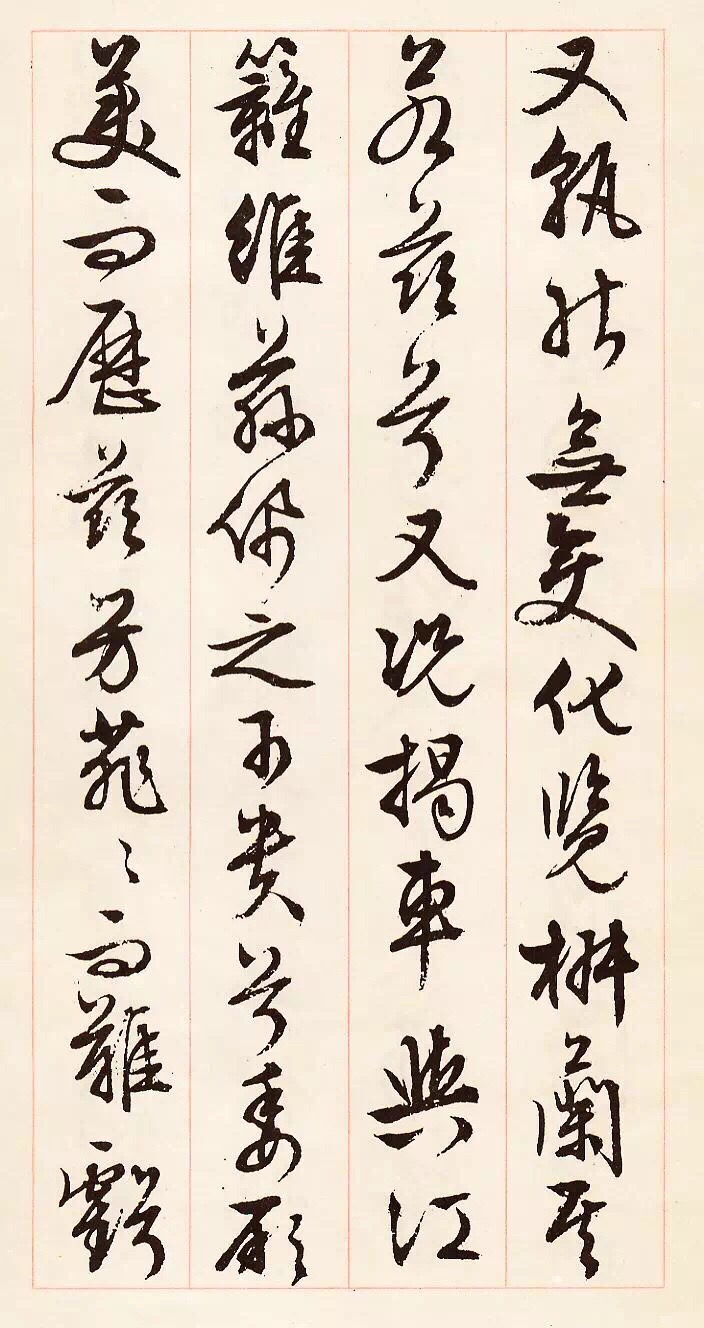 又孰能無變化覽椒蘭其
若茲兮又況揭車與江
籬維茲佩之可貴兮委厥
美而歷茲芳菲〻而難虧